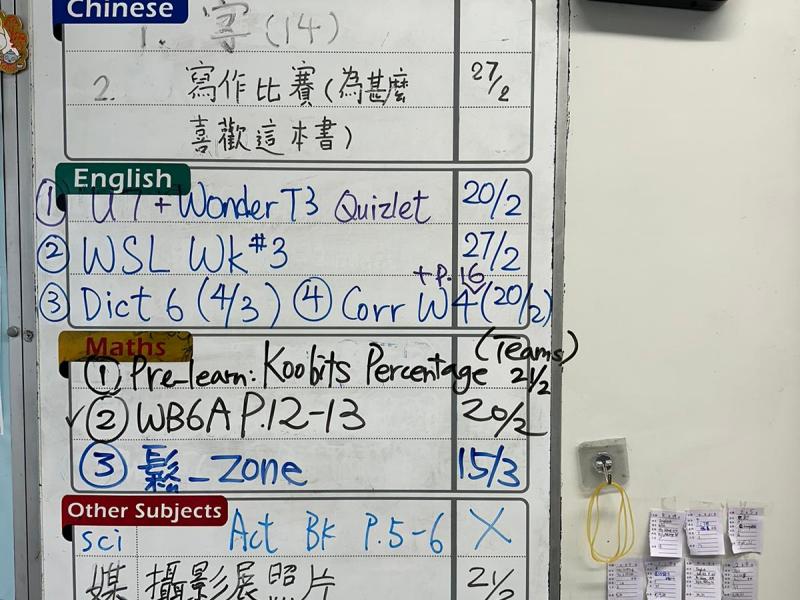 Chinese
1. 字(14)
2. 寫作比賽(為甚麼 27/2
喜歡這本書)
English
① U7+Wonder T3 Quizlet 20/2
② WSL Wk#3 27/2
+P.16
③ Dict 6 (4/3) ④ Corr W4(20/2)
Maths
(Teams)
① Pre-learn: Koobits Percentage 21/2
✓② WB6A P.12-13 20/2
③ 鬆-zone 15/3
Other Subjects
sci Act BK P.5-6 X
媒 攝影展照片 21/2